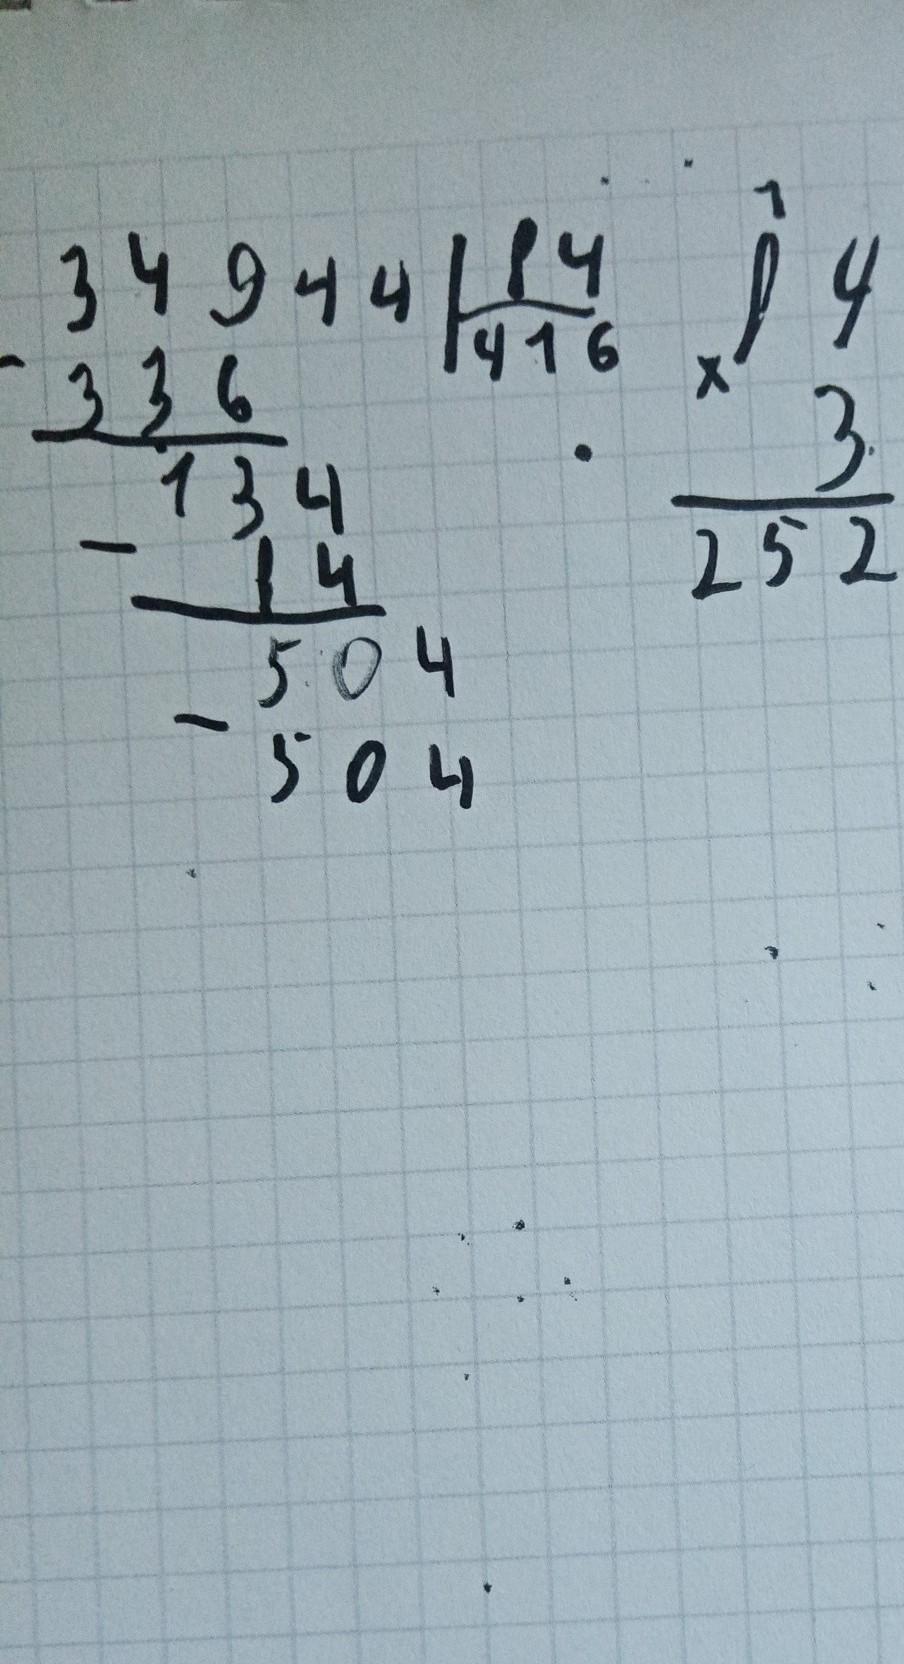 34944 | 84
416
- 336
134
- 84
504
- 504
1
84
× 3
252